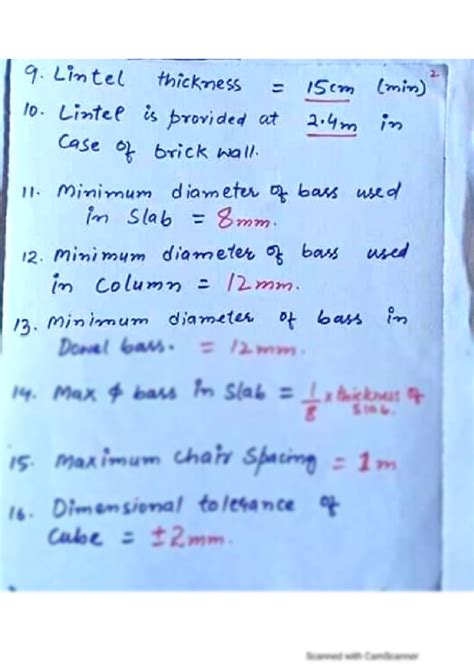 2
9. Lintel thickness = 15cm (min)
10. Lintel is provided at 2.4m in
Case of brick wall.
11. Minimum diameter of bass used
in Slab = 8mm.
12. Minimum diameter of bass used
in Column = 12mm.
13. Minimum diameter of bass in
Dowel bass. = 12mm.
14. Max ϕ bass in Slab = 1/8 x thickness of
Slab.
15. Maximum Chair Spacing = 1m
16. Dimensional tolerance of
Cube = ±2mm.
Scanned with CamScanner